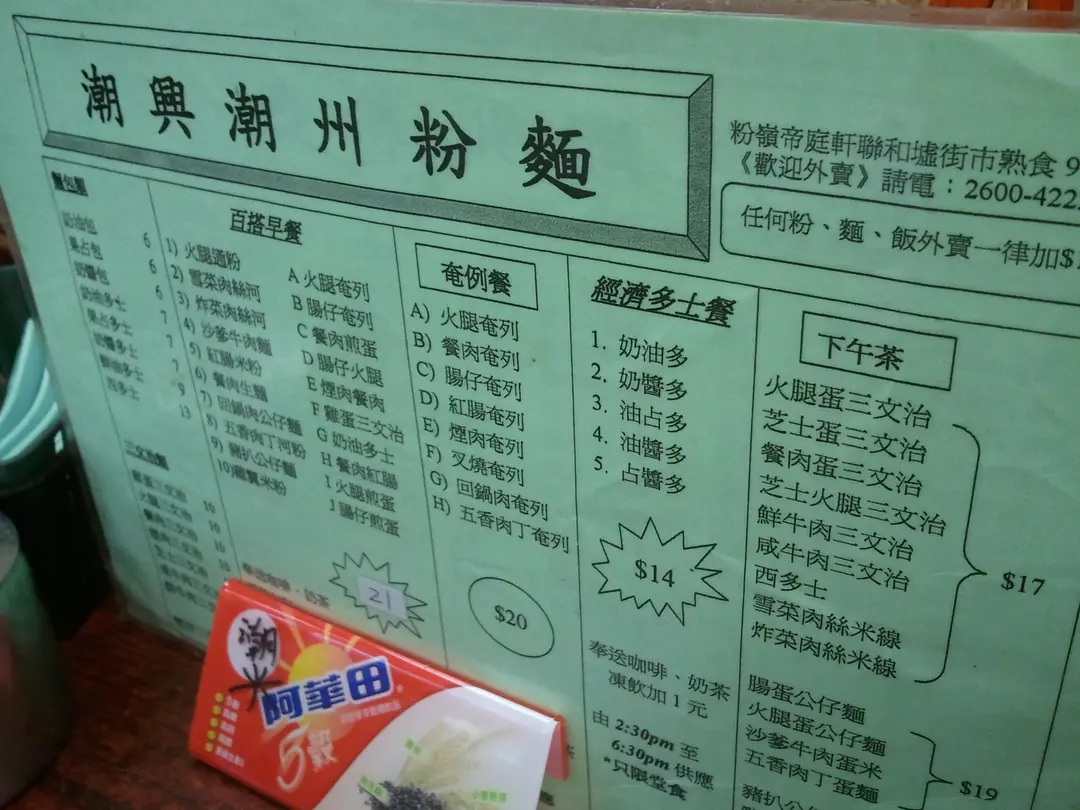 潮興潮州粉麵
粉嶺帝庭軒聯和墟街市熟食 9
《歡迎外賣》請電：2600-422
任何粉、麵、飯外賣一律加$
麵包類
奶油包 6
果占包 6
奶醬包 6
奶油多士 7
果占多士 7
奶醬多士 7
9
西多士 13
三文治類
10
火腿三文治 10
10
10
百搭早餐
1) 火腿通粉
2) 雪菜肉絲河
3) 炸菜肉絲河
4) 沙爹牛肉麵
5) 紅腸米粉
6) 餐肉生麵
7) 回鍋肉公仔麵
8) 五香肉丁河粉
9) 豬扒公仔麵
10)雞翼米粉
A 火腿奄列
B 腸仔奄列
C 餐肉煎蛋
D 腸仔火腿
E 煙肉餐肉
F 雞蛋三文治
G 奶油多士
H 餐肉紅腸
I 火腿煎蛋
J 腸仔煎蛋
奉送咖啡、奶茶
21
奄例餐
A) 火腿奄列
B) 餐肉奄列
C) 腸仔奄列
D) 紅腸奄列
E) 煙肉奄列
F) 叉燒奄列
G) 回鍋肉奄列
H) 五香肉丁奄列
$20
經濟多士餐
1. 奶油多
2. 奶醬多
3. 油占多
4. 油醬多
5. 占醬多
$14
奉送咖啡、奶茶
凍飲加 1 元
由 2:30pm 至
6:30pm 供應
*只限堂食
下午茶
火腿蛋三文治
芝士蛋三文治
餐肉蛋三文治
芝士火腿三文治
鮮牛肉三文治
咸牛肉三文治
西多士
雪菜肉絲米線
炸菜肉絲米線
$17
腸蛋公仔麵
火腿蛋公仔麵
沙爹牛肉蛋米
五香肉丁蛋麵
豬扒公
$19
潮米
阿華田
5穀